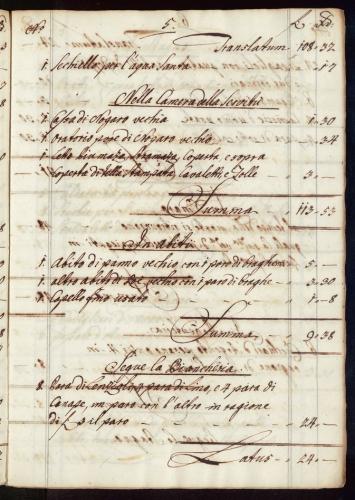 5.
Translatum 108 - 32
1. Sechiello per l'aqua santa - 17
Nella Camera della Servitù
1. Cassa di Nogaro vechia - 30
1. Oratorio pare di Nogaro vechio - 34
1. Letto biumazo, Stramazo, Coperta e sopra
Coperta di tella stampata, Cavaletti, e Tolle 3 -
Summa 113 - 53
In abiti
1. Abito di panno vechio con 1 par di braghe 5 -
1. altro abito di vechio con 1 par di braghe - 30
1. Capello fino usato 1 - 8
Summa 9 38
Segue la Biancheria
8. Para di 4 para di Lino, e 4 para di
Canape, un paro con l'altro in ragione
di L 3 il paro 24 -
Latus 24 -